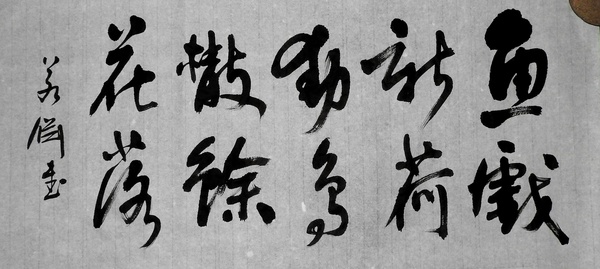 魚戲
新荷
動鳥
散餘
花落
若書